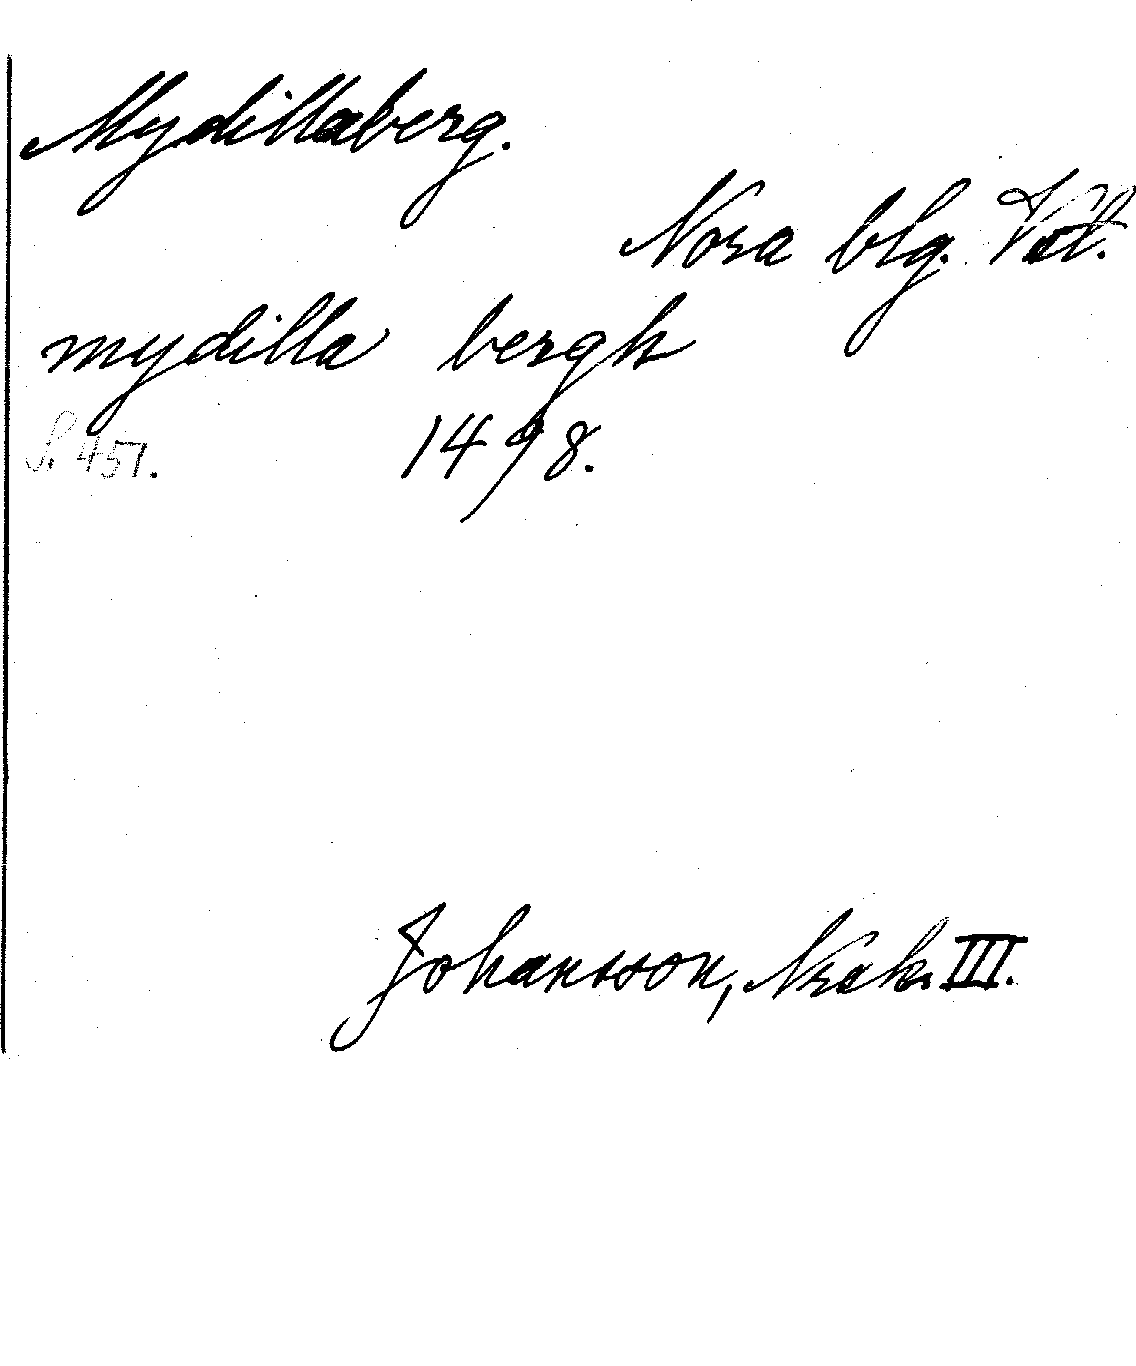 Mydillaberg.
Nora blg. Vstl.
mydilla bergh
S. 451. 1498.
Johansson, Norask. III.